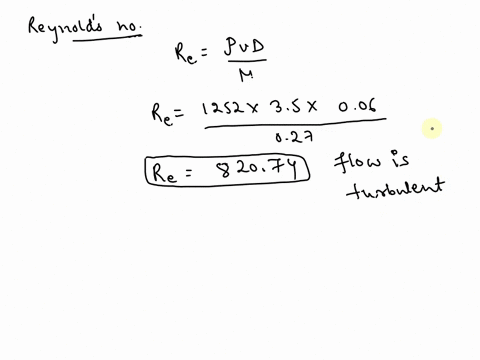 Reynold's no.
Re = ρvD / μ
Re = 1252 × 3.5 × 0.06 / 0.27
Re = 820.74 flow is
turbulent